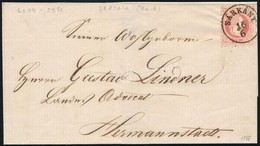 SÁRKÁNY
16
6
Seiner Wohlgeborn
Herrn Gustav Lindner
Landes Advocat
Hermannstadt.